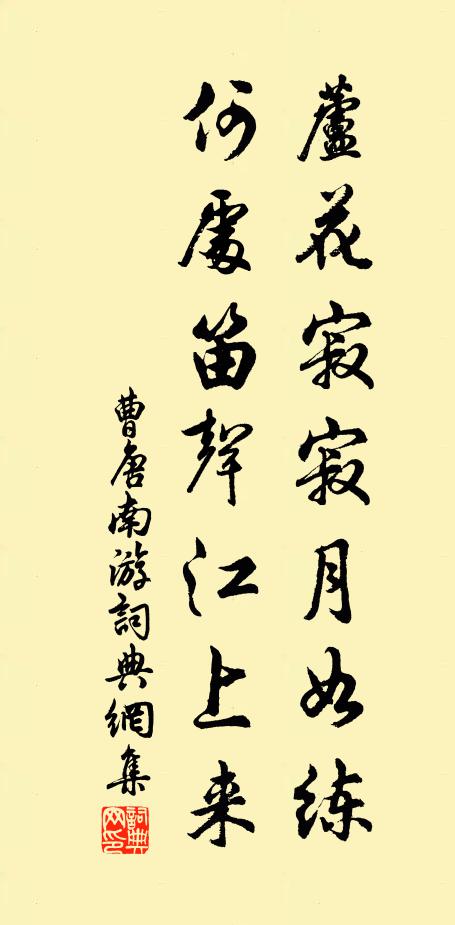 蘆花寂寂月如練
何處笛聲江上来
曹唐南游詞典網集
詞典網印